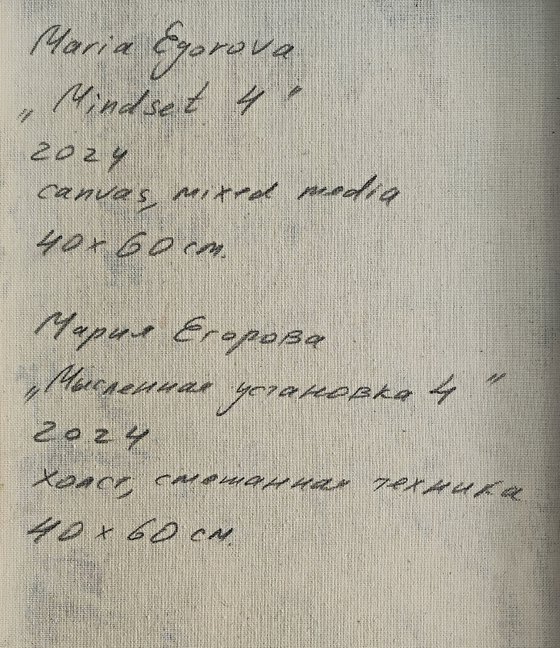 Maria Egorova
„Mindset 4"
2024
canvas, mixed media
40x60 cm.
Мария Егорова
„Мысленная установка 4"
2024
холст, смешанная техника
40 x 60 см.